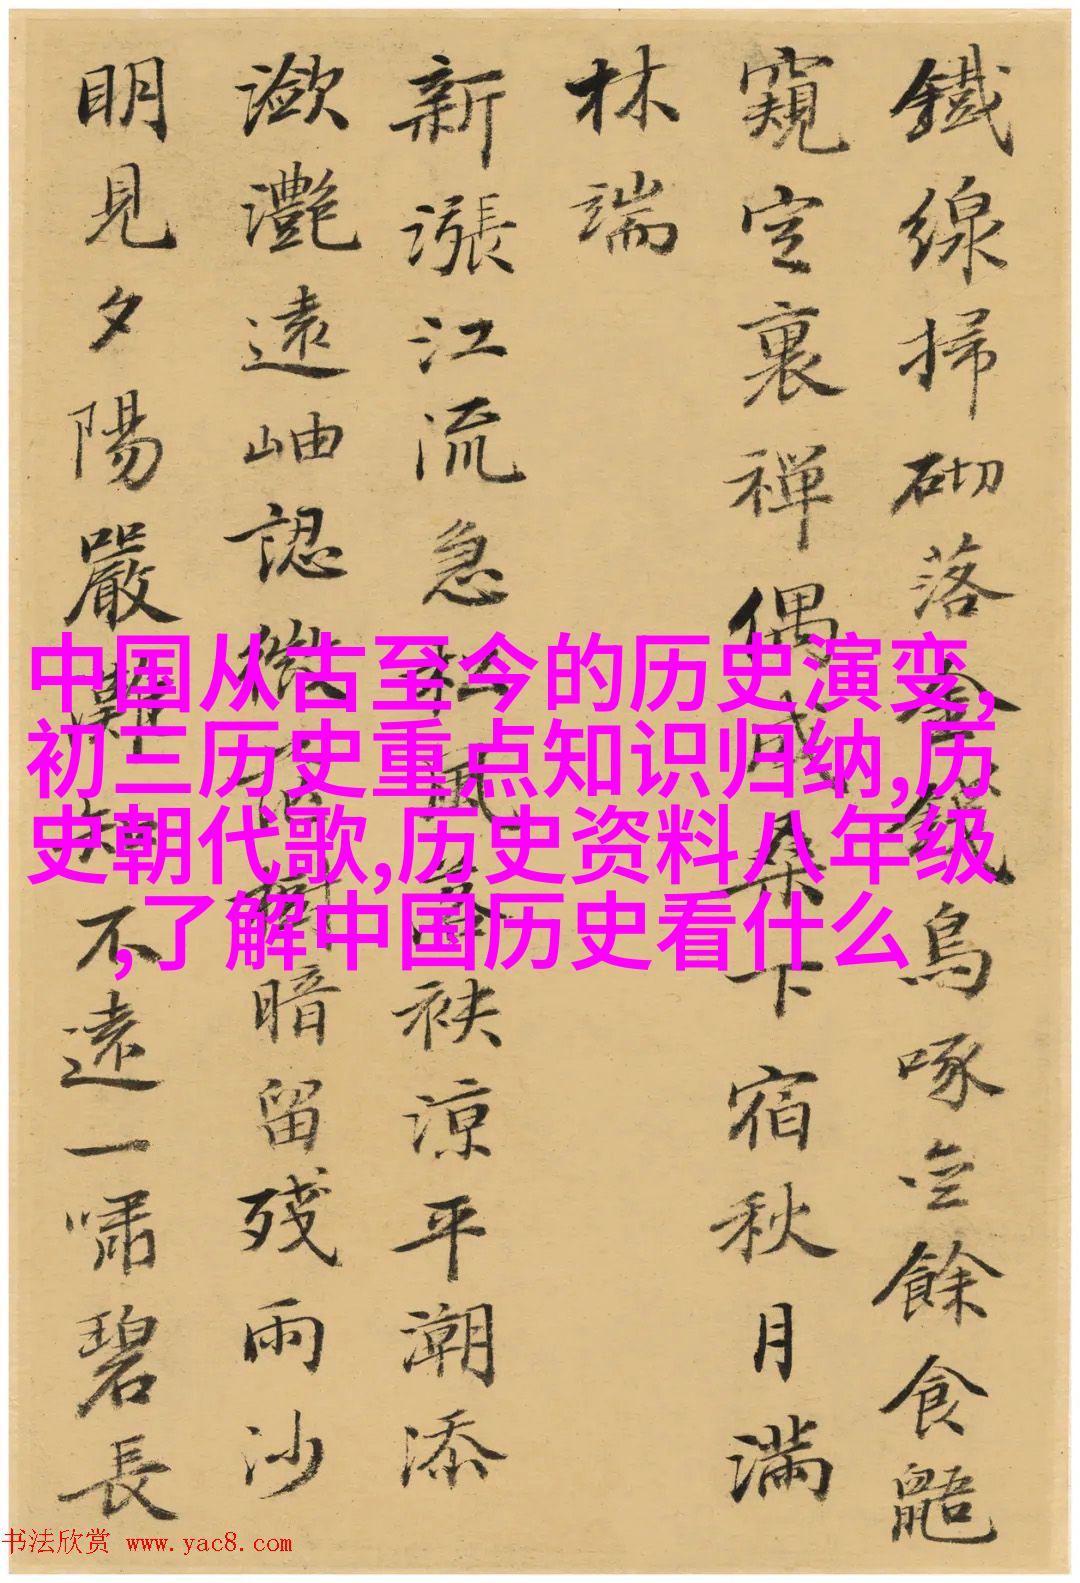 鐵線掃砌落金錢烏啄餘食鼯
窺空裏禪偶成桑下宿秋月滿
林端
新漲江流急松風袂涼平潮添
瀲灩遠岫認微茫樹暗留殘雨沙
明見夕陽嚴灘知不遠一嘯碧長
中国从古至今的历史演变,
初三历史重点知识归纳,历
史朝代歌,历史资料八年级
,了解中国历史看什么
书法欣赏 www.yac8.com